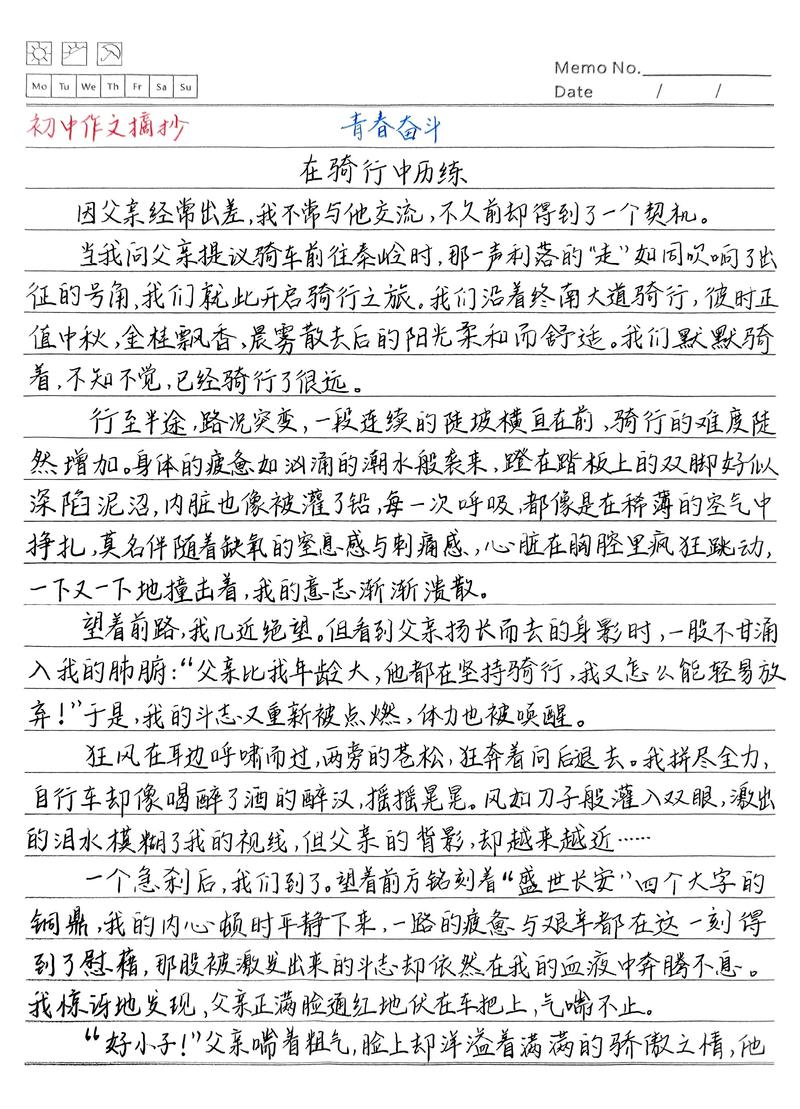 Mo Tu We Th Fr Sa Su
Memo No.
Date / /
初中作文摘抄 青春奋斗
在骑行中历练
因父亲经常出差,我不常与他交流,不久前却得到了一个契机。
当我问父亲提议骑车前往秦岭时,那一声利落的“走”如同吹响了出
征的号角,我们就此开启骑行之旅。我们沿着终南大道骑行,彼时正
值中秋,金桂飘香,晨雾散去后的阳光柔和而舒适。我们默默骑
着,不知不觉,已经骑行了很远。
行至半途,路况突变,一段连续的陡坡横亘在前,骑行的难度陡
然增加。身体的疲惫如汹涌的潮水般袭来,蹬在踏板上的双脚好似
深陷泥沼,内脏也像被灌了铅,每一次呼吸,都像是在稀薄的空气中
挣扎,莫名伴随着缺氧的窒息感与刺痛感,心脏在胸腔里疯狂跳动,
一下又一下地撞击着,我的意志渐渐溃散。
望着前路,我几近绝望。但看到父亲扬长而去的身影时,一股不甘涌
入我的肺腑:“父亲比我年龄大,他都在坚持骑行,我又怎么能轻易放
弃!”于是,我的斗志又重新被点燃,体力也被唤醒。
狂风在耳边呼啸而过,两旁的苍松,狂奔着向后退去。我拼尽全力,
自行车却像喝醉了酒的醉汉,摇摇晃晃。风如刀子般灌入双眼,激出
的泪水模糊了我的视线,但父亲的背影,却越来越近……
一个急刹后,我们到了。望着前方铭刻着“盛世长安”四个大字的
铜鼎,我的内心顿时平静下来,一路的疲惫与艰辛都在这一刻得
到了慰藉,那股被激发出来的斗志却依然在我的血液中奔腾不息。
我惊讶地发现,父亲正满脸通红地伏在车把上,气喘不止。
“好小子!”父亲喘着粗气,脸上却洋溢着满满的骄傲之情,他